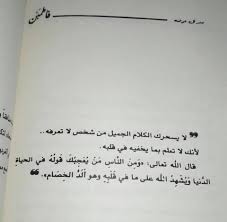 فاطمئن
لا يسحرك الكلام الجميل من شخص لا تعرفه..
لأنك لا تعلم بما يخفيه في قلبه.
قال الله تعالى: «وَمِنَ النَّاسِ مَنْ يُعْجِبُكَ قَوْلُهُ فِي الحياةِ
الدُّنيا وَيُشْهِدُ اللهَ على ما في قَلْبِهِ وهو أَلَدُّ الخِصَامِ».